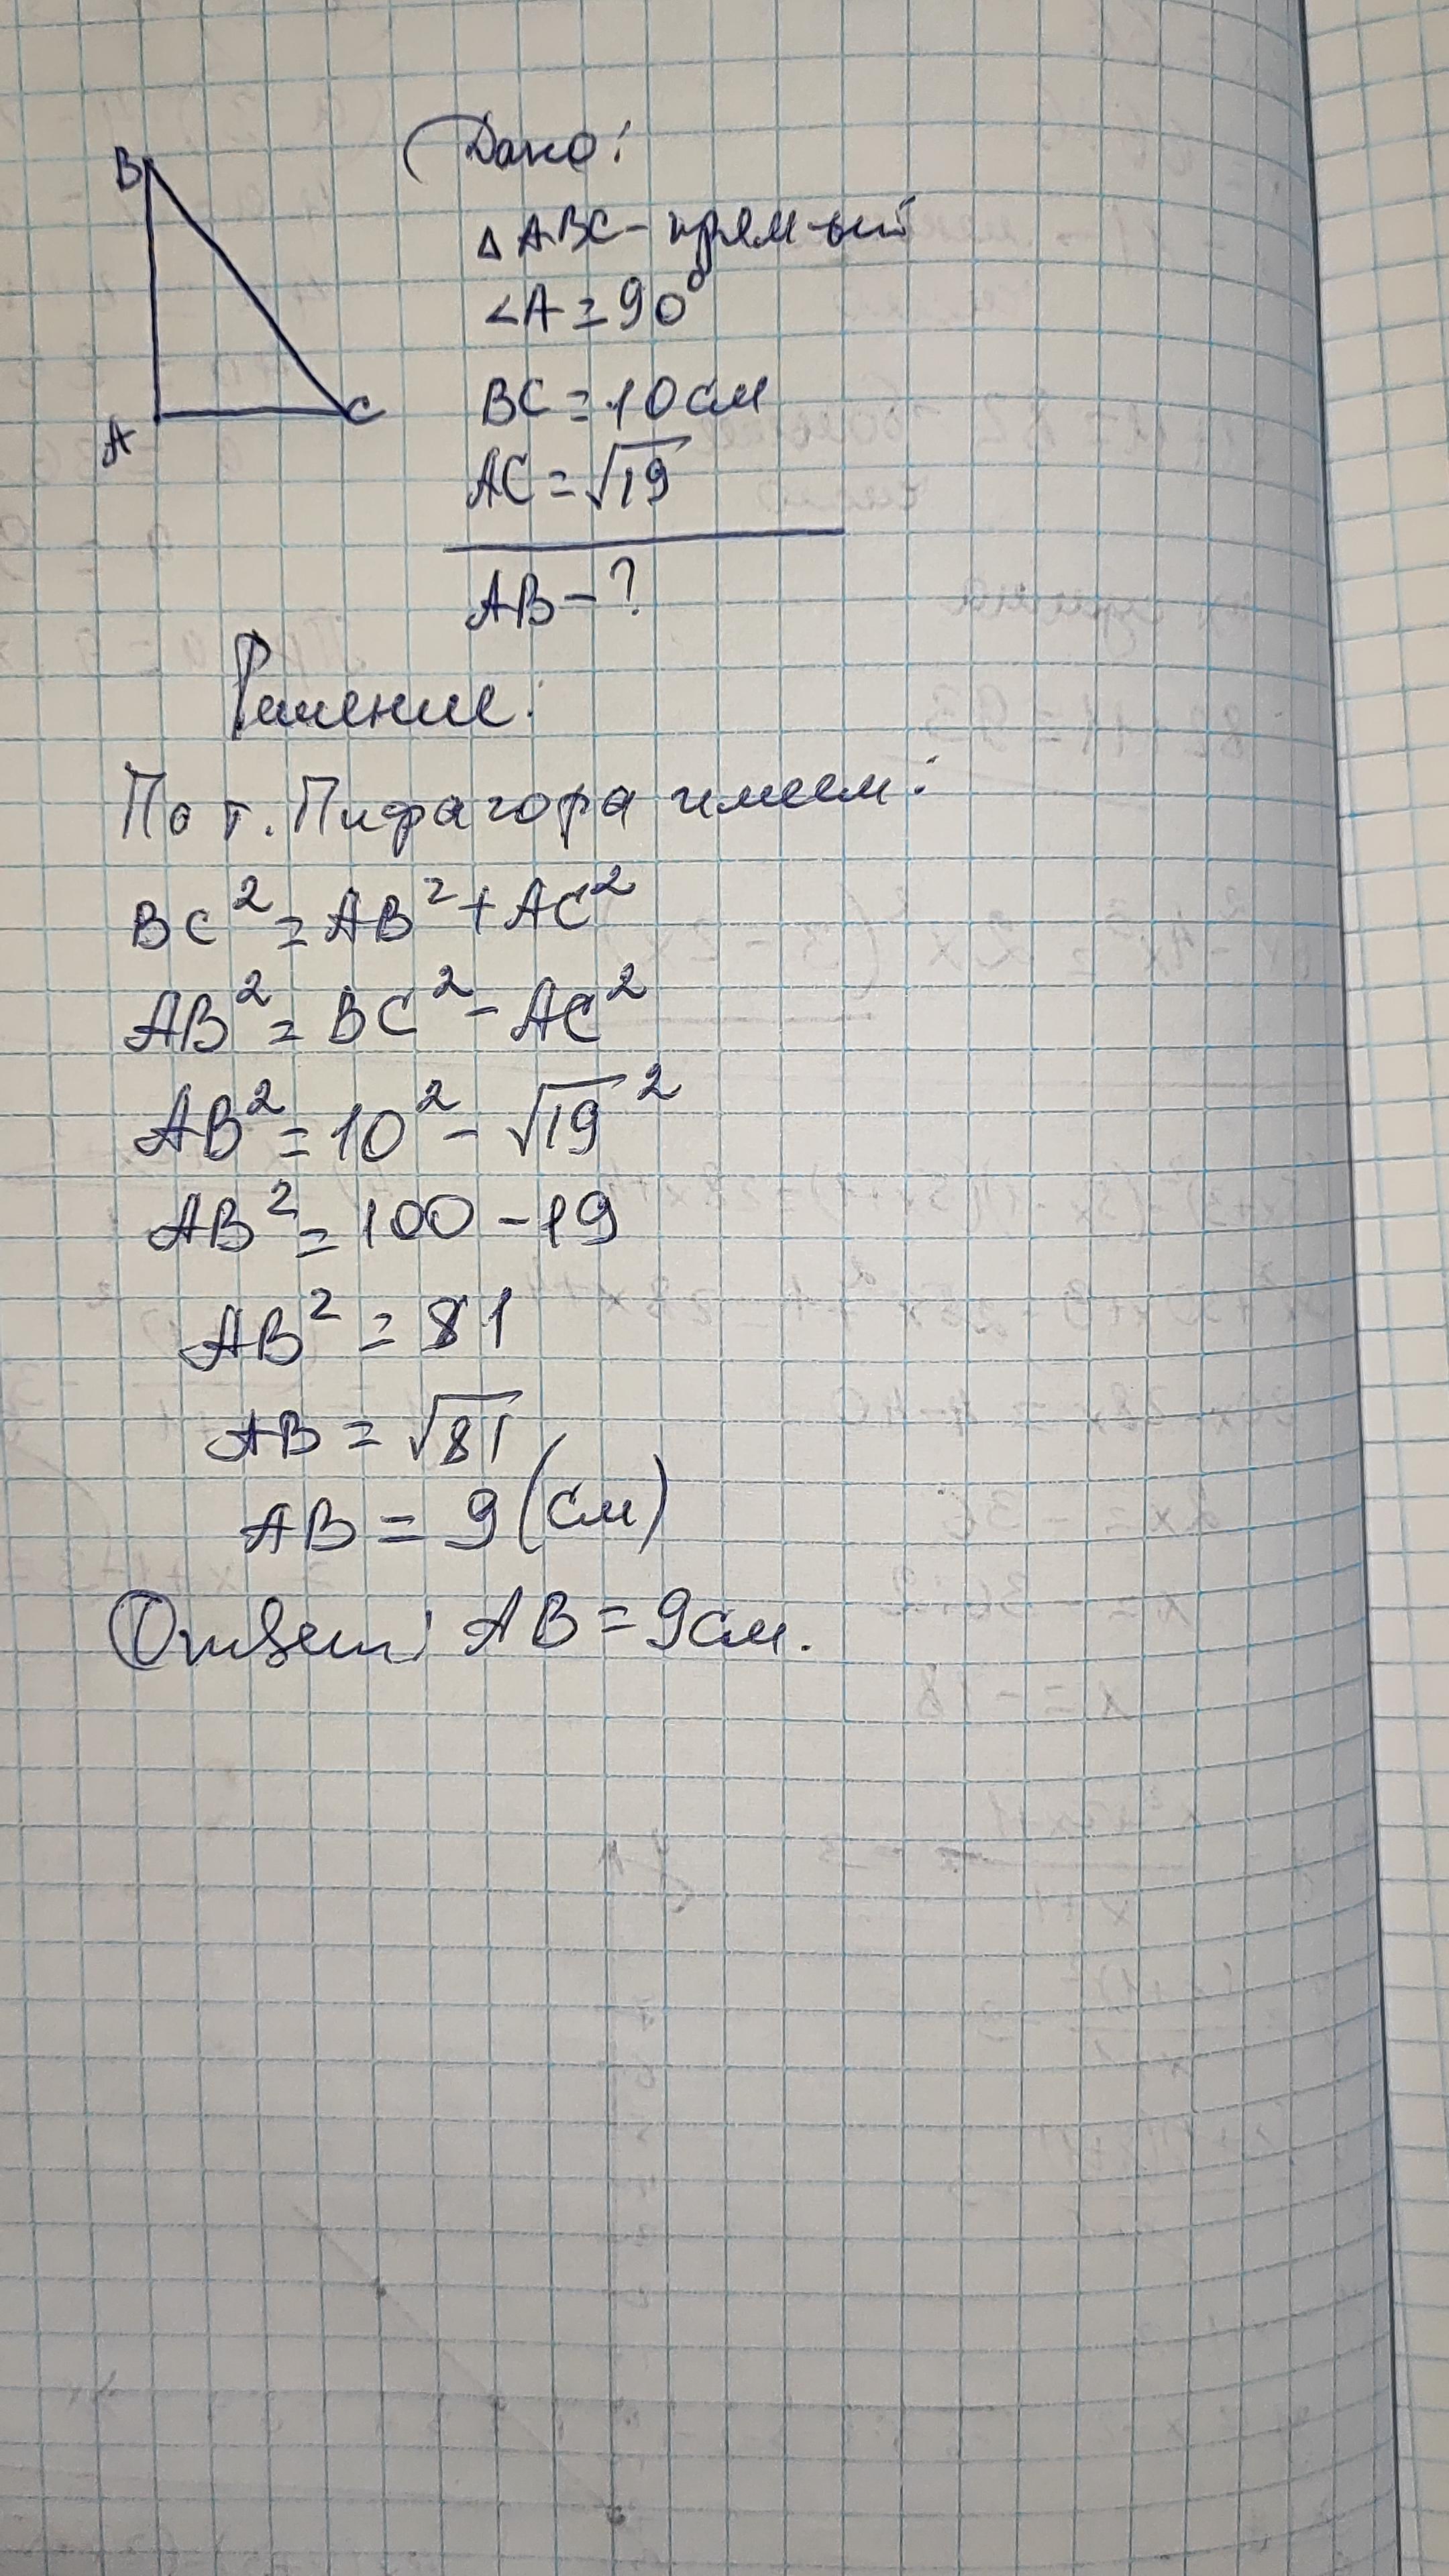 B
A
C
Дано:
△ABC - прям-ый
∠A = 90°
BC = 10 см
AC = √19
AB - ?
Решение:
По т. Пифагора имеем:
BC² = AB² + AC²
AB² = BC² - AC²
AB² = 10² - √19²
AB² = 100 - 19
AB² = 81
AB = √81
AB = 9 (см)
Ответ: AB = 9 см.